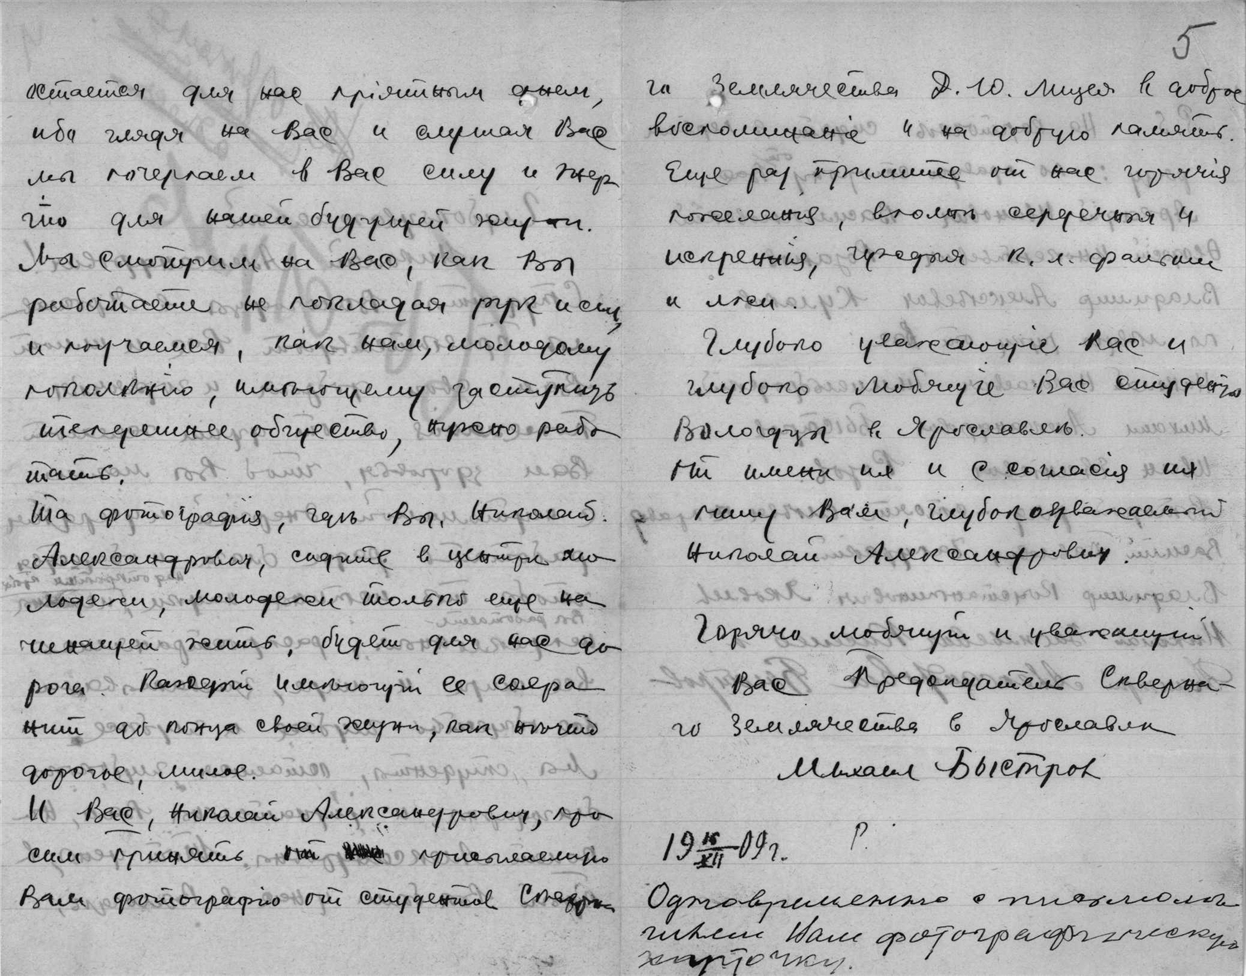 остается для нас прiятным днем,
ибо глядя на Вас и слушая Вас
мы почерпаем в Вас силу и энер
гiю для нашей будущей жизни.
Мы смотрим на Вас, как Вы
работаете не покладая рук и сил,
и поучаемся, как нам, молодому
поколѣнiю, имѣющему заступить
теперешнее общество, нужно рабо
тать.
Та фотографiя, гдѣ Вы, Николай
Александрович, сидите в центрѣ мо
лодежи, молодежи только еще на
чинающей жить, будет для нас до
рога. Каждый имѣющiй ее сохра
нит до конца своей жизни, как нѣчто
дорогое, милое.
И Вас, Николай Александрович, про
сим принять присылаемую
Вам фотографiю от студентов Сѣверна
5
го Землячества Д. Ю. Лицея в доброе
воспоминанiе и на добрую память.
Еще раз примите от нас горячiя
пожеланiя, вполнѣ сердечныя и
искреннiя, чуждыя к. л. фальши
и лжи.
Глубоко уважающiе Вас и
глубоко любящiе Вас студенты
Вологдцы в Ярославлѣ.
От имени их и с согласiя их
пишу Вам, глубокоуважаемый
Николай Александрович.
Горячо любящiй и уважающiй
Вас Председатель Сѣверна-
го Землячества в Ярославлѣ
Михаил Быстров
19 16/XII 09 г. Р.
Одновременно с письмом
Вам фотографическую
карточку.